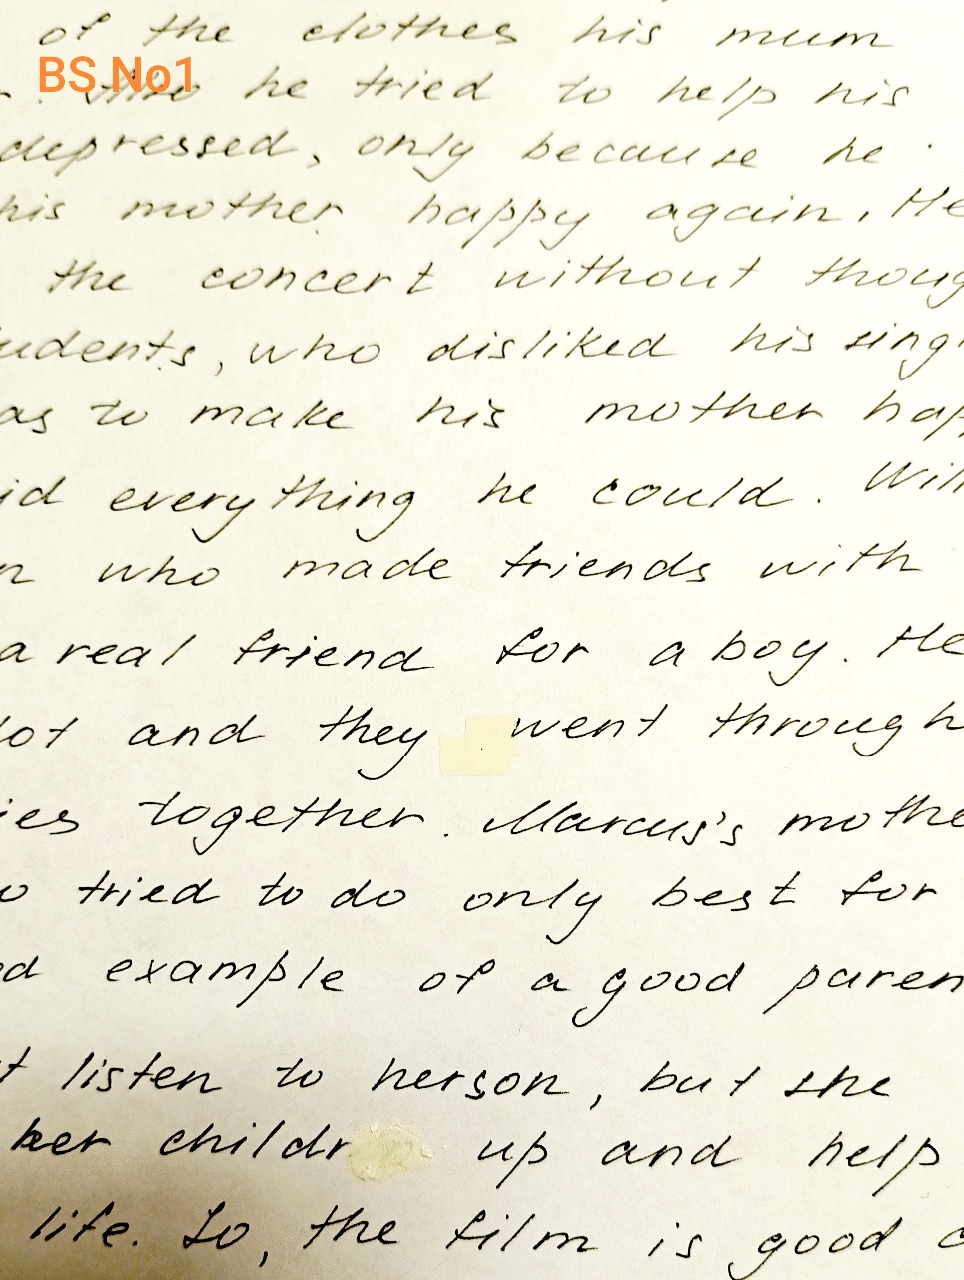 of the clothes his mum
BS No1
he tried to help his
depressed, only because he
his mother happy again. He
the concert without thoug
udents, who disliked his sing
as to make his mother hap
id everything he could. Will
n who made friends with
a real friend for a boy. He
lot and they went through
ies together. Marcus's mothe
o tried to do only best for
d example of a good paren
t listen to her son, but she
her childr up and help
life. So, the film is good